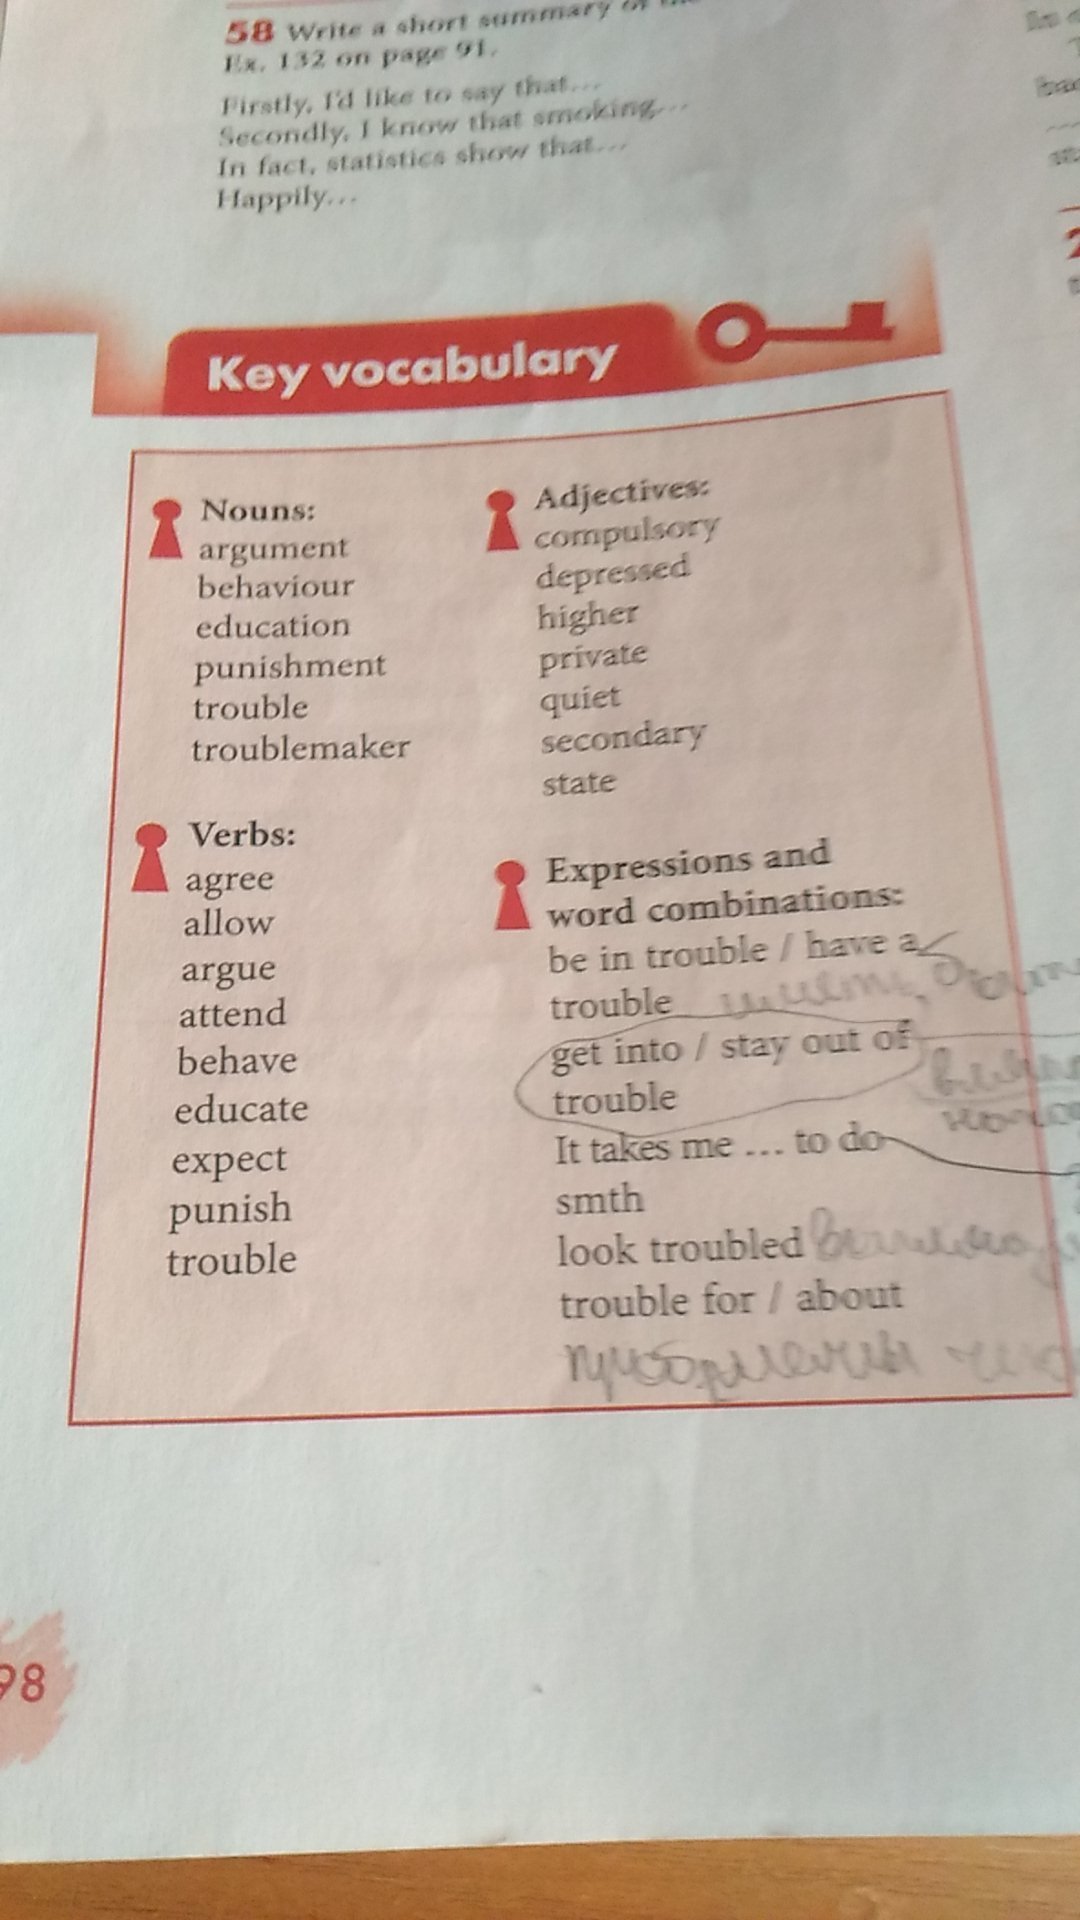 58 Write a short summary of
Ex. 132 on page 91.
Firstly, I'd like to say that...
Secondly, I know that smoking...
In fact, statistics show that...
Happily...
Key vocabulary
Nouns:
argument
behaviour
education
punishment
trouble
troublemaker
Verbs:
agree
allow
argue
attend
behave
educate
expect
punish
trouble
Adjectives:
compulsory
depressed
higher
private
quiet
secondary
state
Expressions and
word combinations:
be in trouble / have a
trouble
get into / stay out of
trouble
It takes me ... to do
smth
look troubled
trouble for / about
98